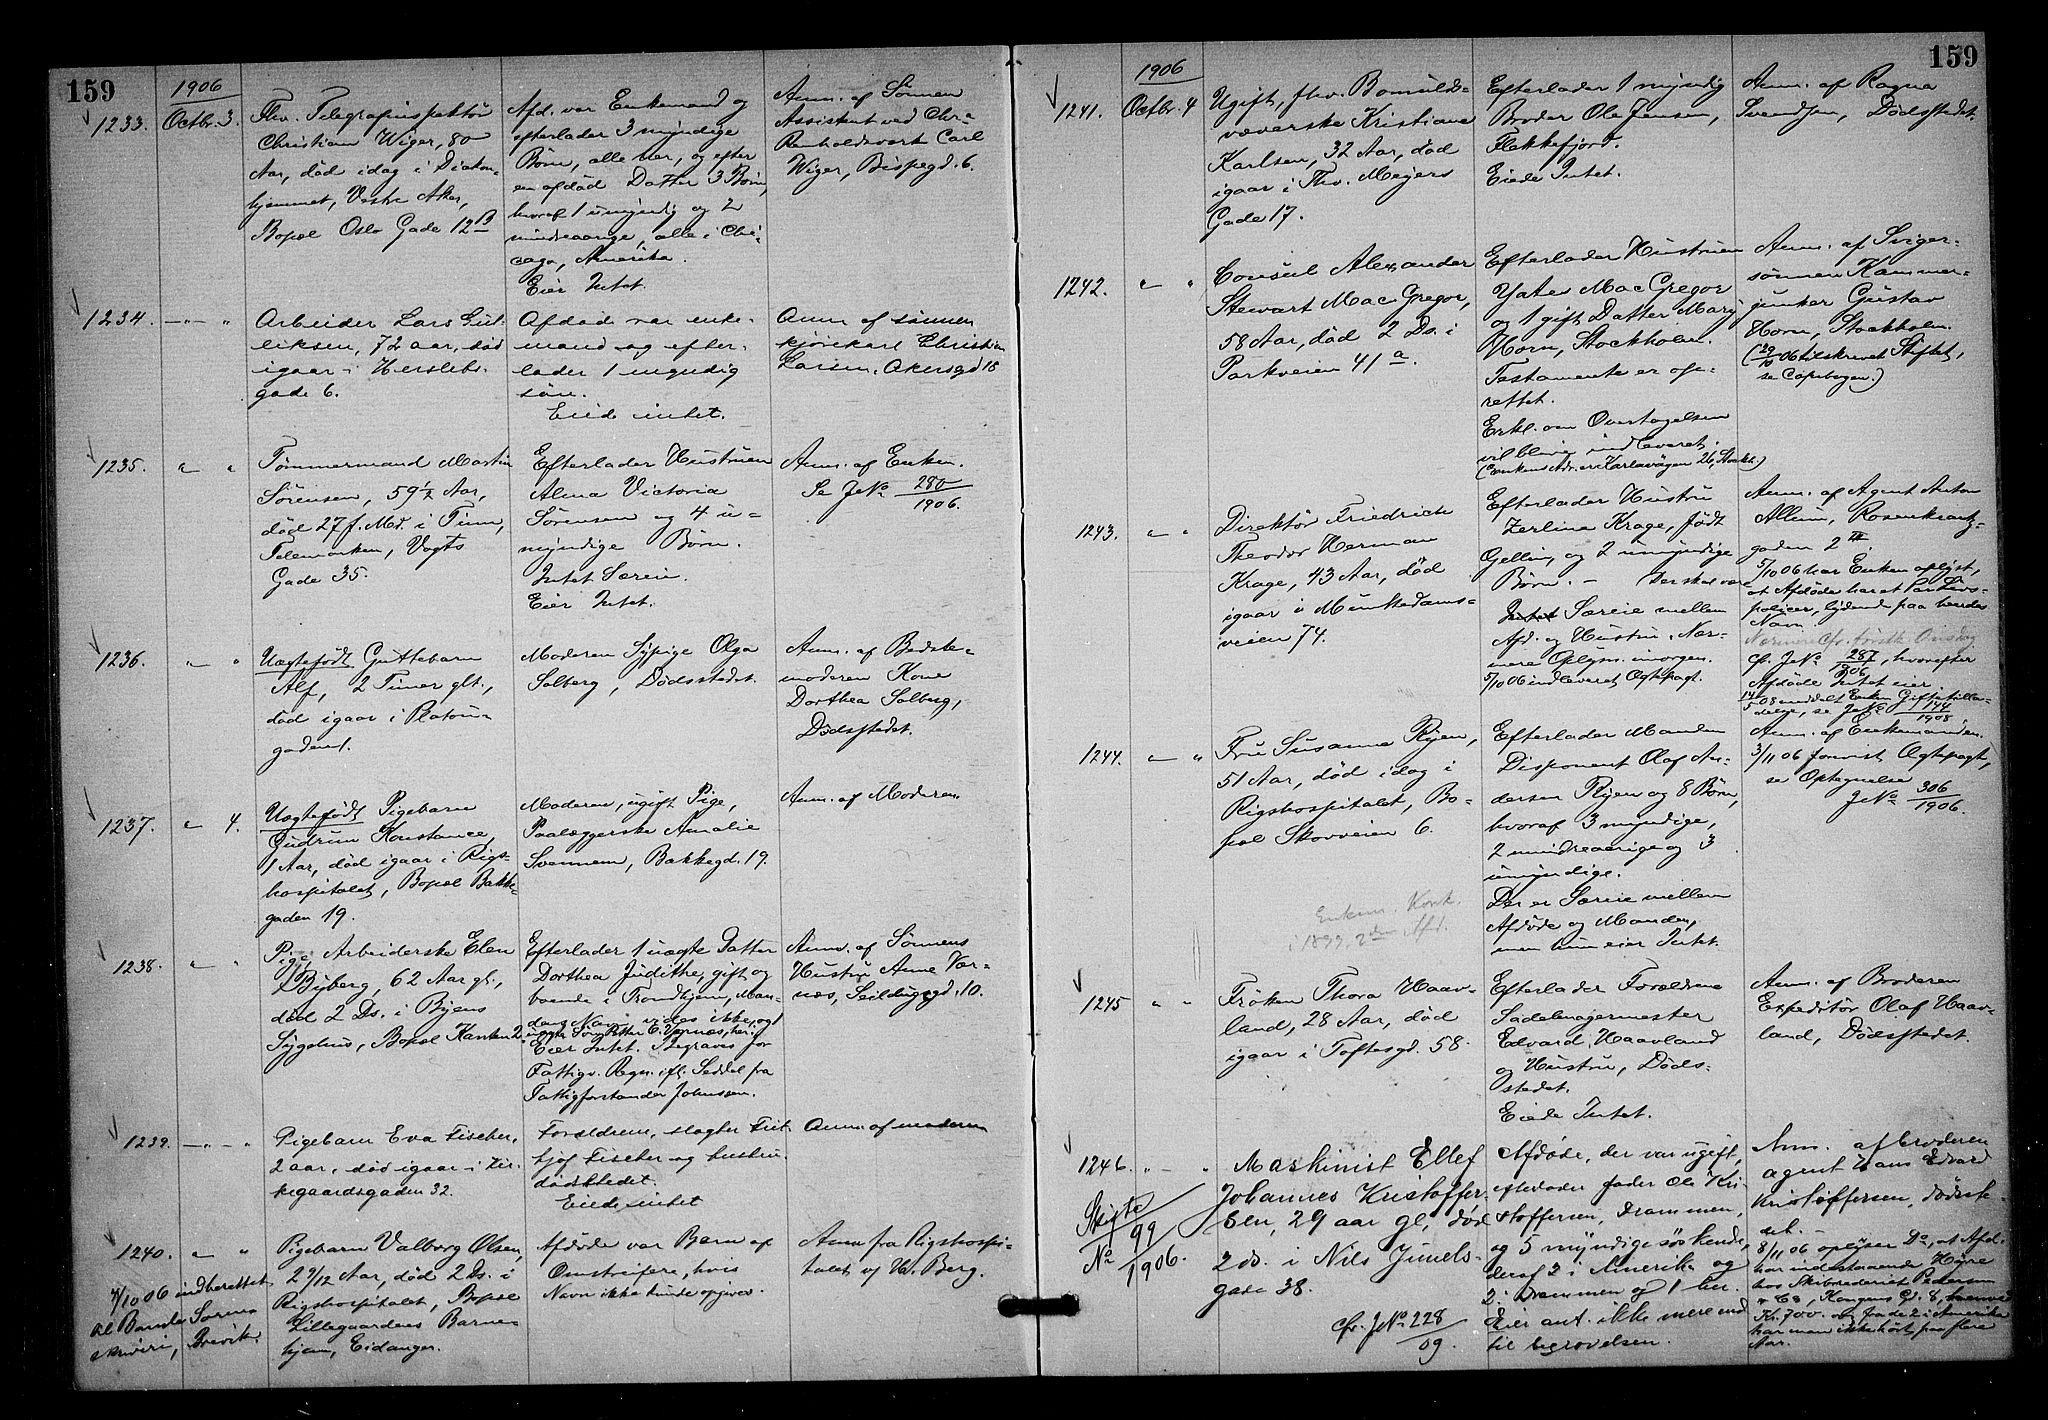 159
1906
1233.
Octbr. 3.
Fhv. Telegrafinspektør
Christian Wiger, 80
Aar, død idag i Diakon-
hjemmet, Vestre Aker,
Bopæl Oslo Gade 12 B
Afd. var Enkemand og
efterlader 3 myndige
Børn, alle her, og efter
en afdød Datter 3 Børn,
hvoraf 1 umyndig og 2
mindreaarige, alle i Chi-
cago, Amerika.
Eier Intet.
Anm. af Sønnen
Assistent ved Chr.
Renholdsværk Carl
Wiger, Bispegd. 6.
1234.
Arbeider Lars Gul-
liksen, 72 aar, død
igaar i Herslebs-
gade 6.
Afdøde var enke-
mand og efter-
lader 1 myndig
søn.
Eiede intet.
Anm af sønnen
kjørekarl Christian
Larsen, Akersgd 18
1235. " "
Tømmermand Martin
Sørensen, 59 1/2 Aar,
død 27 f. Md. i Tinn,
Telemarken, Vogts
Gade 35.
Efterlader Hustruen
Alma Victoria
Sørensen og 4 u-
myndige Børn.
Intet Særeie.
Eier Intet.
Anm. af Enken.
Se J No 280/1906.
1236. " "
Uægtefødt Guttebarn
Alf, 2 Timer glt.,
død igaar i Platou-
gaden 1.
Moderen Sypige Olga
Solberg, Dødsstedet.
Anm. af Bedste-
moderen Kone
Dorthea Solberg,
Dødsstedet.
1237. " 4.
Uægtefødt Pigebarn
Gudrun Konstance,
1 Aar, død igaar i Rigs-
hospitalet, Bopæl Bakke-
gaden 19.
Moderen, ugift Pige,
Paalæggerske Amalie
Svennem, Bakkegd. 19.
Anm. af Moderen.
1238. " "
Pige Arbeiderske Elen
Byberg, 62 Aar gl.,
død 2 Ds. i Byens
Sygehus, Bopæl Hausken 2.
Efterlader 1 uægte Datter
Dorthea Judithe, gift og
boende i Trondhjem, Man-
dens Navn vides ikke, og 1
uægte Søn Petter C. Vornæs, her.
Eier Intet. Begraves for
Fattigv. Regn. ifl. Seddel fra
Fattigforstander Johnssen.
Anm. af Sønnens
Hustru Anne Vor-
næs, Seildugsgd. 10.
1239.
Pigebarn Eva Fischer,
2 aar, død igaar i Kir-
kegaardsgaden 32.
Forældrene, slagter Frit-
hjof Fischer og hustru.
dødsstedet.
Eiede intet
Anm. af moderen
1240. " "
7/10 06 indberettet
til Bamle Soren-
skriveri, Brevik.
Pigebarn Valborg Olsen,
2 9/12 Aar, død 2 Ds. i
Rigshospitalet, Bopæl
Lillegaardens Barne-
hjem, Eidanger.
Afdøde var Barn af
Omstreifere, hvis
Navn ikke kunde opgives.
Anm fra Rigshospi-
talet v/ Hr. Berg.
159
1906
1241.
Octbr. 4
Ugift, fhv. Bomulds-
væverske Kristiane
Karlsen, 32 Aar, død
igaar i Thv. Meyers
Gade 17.
Efterlader 1 myndig
Broder Ole Jensen,
Flekkefjord.
Eiede Intet.
Anm. af Ragna
Svendsen, Dødsstedet.
1242. " "
Consul Alexander
Stewart MacGregor,
58 Aar, død 2 Ds. i
Parkveien 41 a.
Efterlader Hustruen
Yates MacGregor
og 1 gift Datter Mary
Horn, Stockholm.
Testamente er op-
rettet.
Erkl. om Overtagelsen
vil blive indleveret.
(Enkens Adr. er Karlavägen 26, Stockh.)
Anm. af Sviger-
sønnen Kammer-
junker Gustav
Horn, Stockholm.
(29/10 06 tilskrevet Stiftet,
se Copibogen.)
1243. " "
Direktør Friedrich
Theodor Herman
Krage, 43 Aar, død
igaar i Munkedams-
veien 74.
Efterlader Hustru
Zerlina Krage, født
Gellin, og 2 umyndige
Børn. – Der skal være
Særeie mellem
Afd. og Hustru. Nær-
mere Oplysn. imorgen.
5/10 06 indleveret Ægtepagt.
Anm. af Agent Anton
Allum, Rosenkrantz-
gaden 2 III.
5/10 06 har Enken oplyst,
at Afdøde har et Par Livs-
policer, lydende paa hendes
Navn.
cfr. J No 287/1906, hvorefter
Afdøde Intet eier.
14/5 08 meddelt Enken Giftetilla-
delse, se J No 144/1908.
1244. " "
Fru Susanna Ryen,
51 Aar, død idag i
Rigshospitalet, Bo-
pæl Skovveien 6.
Enkem. Konk.
i 1899, 2den Afd.
Efterlader Manden
Disponent Olaf An-
dersen Ryen og 8 Børn,
hvoraf 3 myndige,
2 mindreaarige og 3
umyndige.
Der er Særeie mellem
Afdøde og Manden,
men hun eier Intet.
Anm. af Enkemanden.
3/11 06 forevist Ægtepagt,
se Optegnelse
J No 306/1906.
1245 " "
Frøken Thora Haav-
land, 28 Aar, død
igaar i Toftesgd. 58.
Efterlader Forældrene
Sadelmagermester
Edvard Haavland
og Hustru, Døds-
stedet.
Eiede Intet.
Anm. af Broderen
Expeditør Olaf Haav-
land, Dødsstedet.
1246. " "
Skifte
No 99/1906.
Maskinist Ellef
Johannes Kristoffer-
sen, 29 aar gl, død
2 ds. i Nils Juuels-
gade 38.
cfr. J No 228/09.
Afdøde, der var ugift,
efterlader fader Ole Kri-
stoffersen, Drammen,
og 5 myndige søskende,
deraf 2 i Amerika og
2 i Drammen og 1 her.
Eier ant. ikke mere end
til begravelsen.
Anm. af broderen
agent Hans Edvard
Kristoffersen, dødsste-
det.
8/11 06 oplyser Do, at Afd.
har indestaaende Hyre
hos Skibsrederiet Pedersen
& Co, Kongens Gd. 8,
Kr. 700.
har man ikke hørt fra flere
Aar.